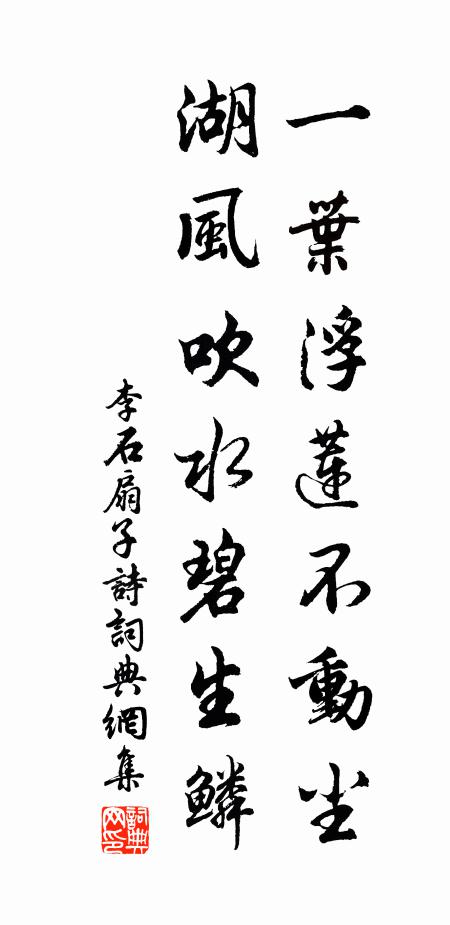 一葉浮蓮不動尘
湖風吹水碧生鱗
李石扇子詩詞典網集
詞典网印